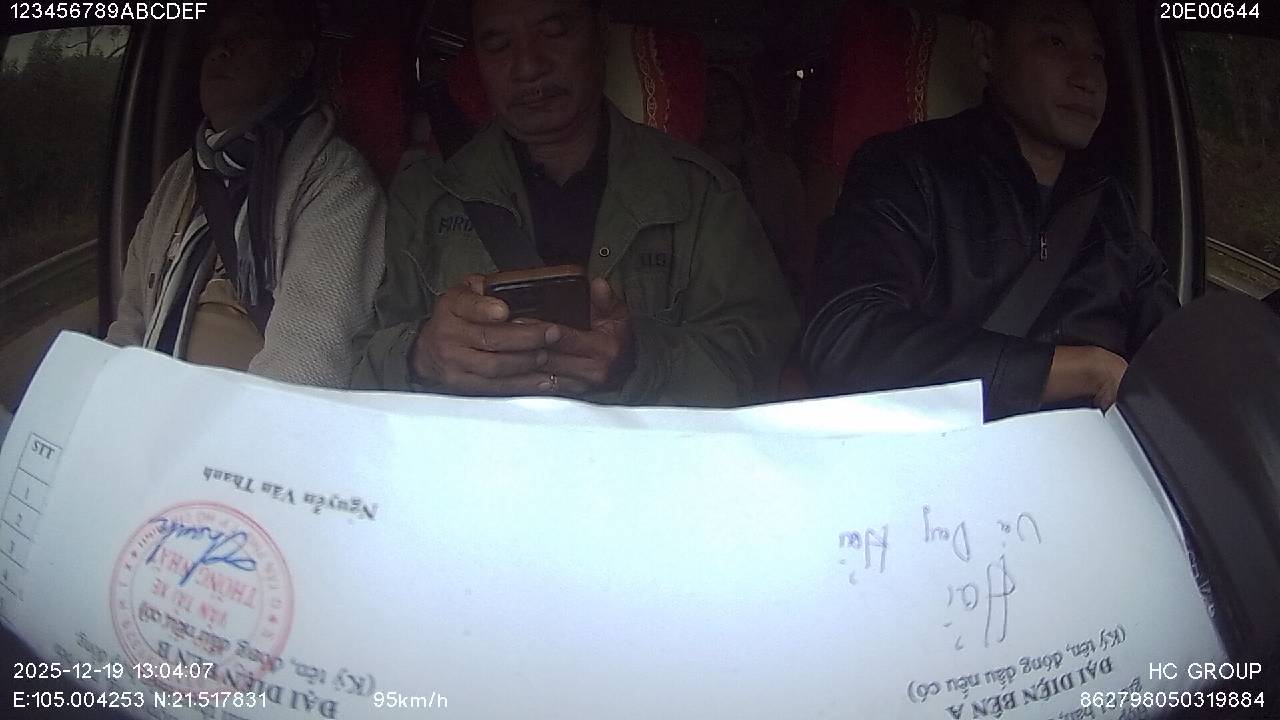 123456789ABCDEF
20E00644
STT
1
2
3
4
Nguyễn Văn Thanh
THỐNG NHẤT
VẬN TẢI XE
(Ký tên, đóng dấu nếu có)
ĐẠI DIỆN BÊN B
Hải
(Ký tên, đóng dấu nếu có)
ĐẠI DIỆN BÊN A
2025-12-19 13:04:07
HC GROUP
E:105.004253 N:21.517831 95km/h
862798050319884